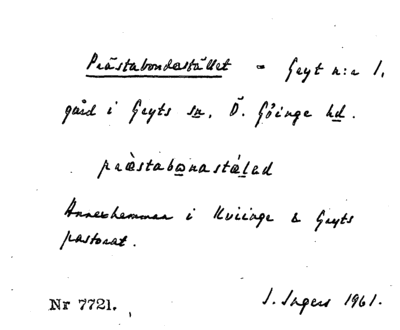 Prästabondestället = Gryt n:r 1.
gård i Gryts sn, Ö. Göinge hd.
prästabonastäled
Annexhemman i Kviinge & Gryts
pastorat.
Nr 7721. I. Ingers 1961.